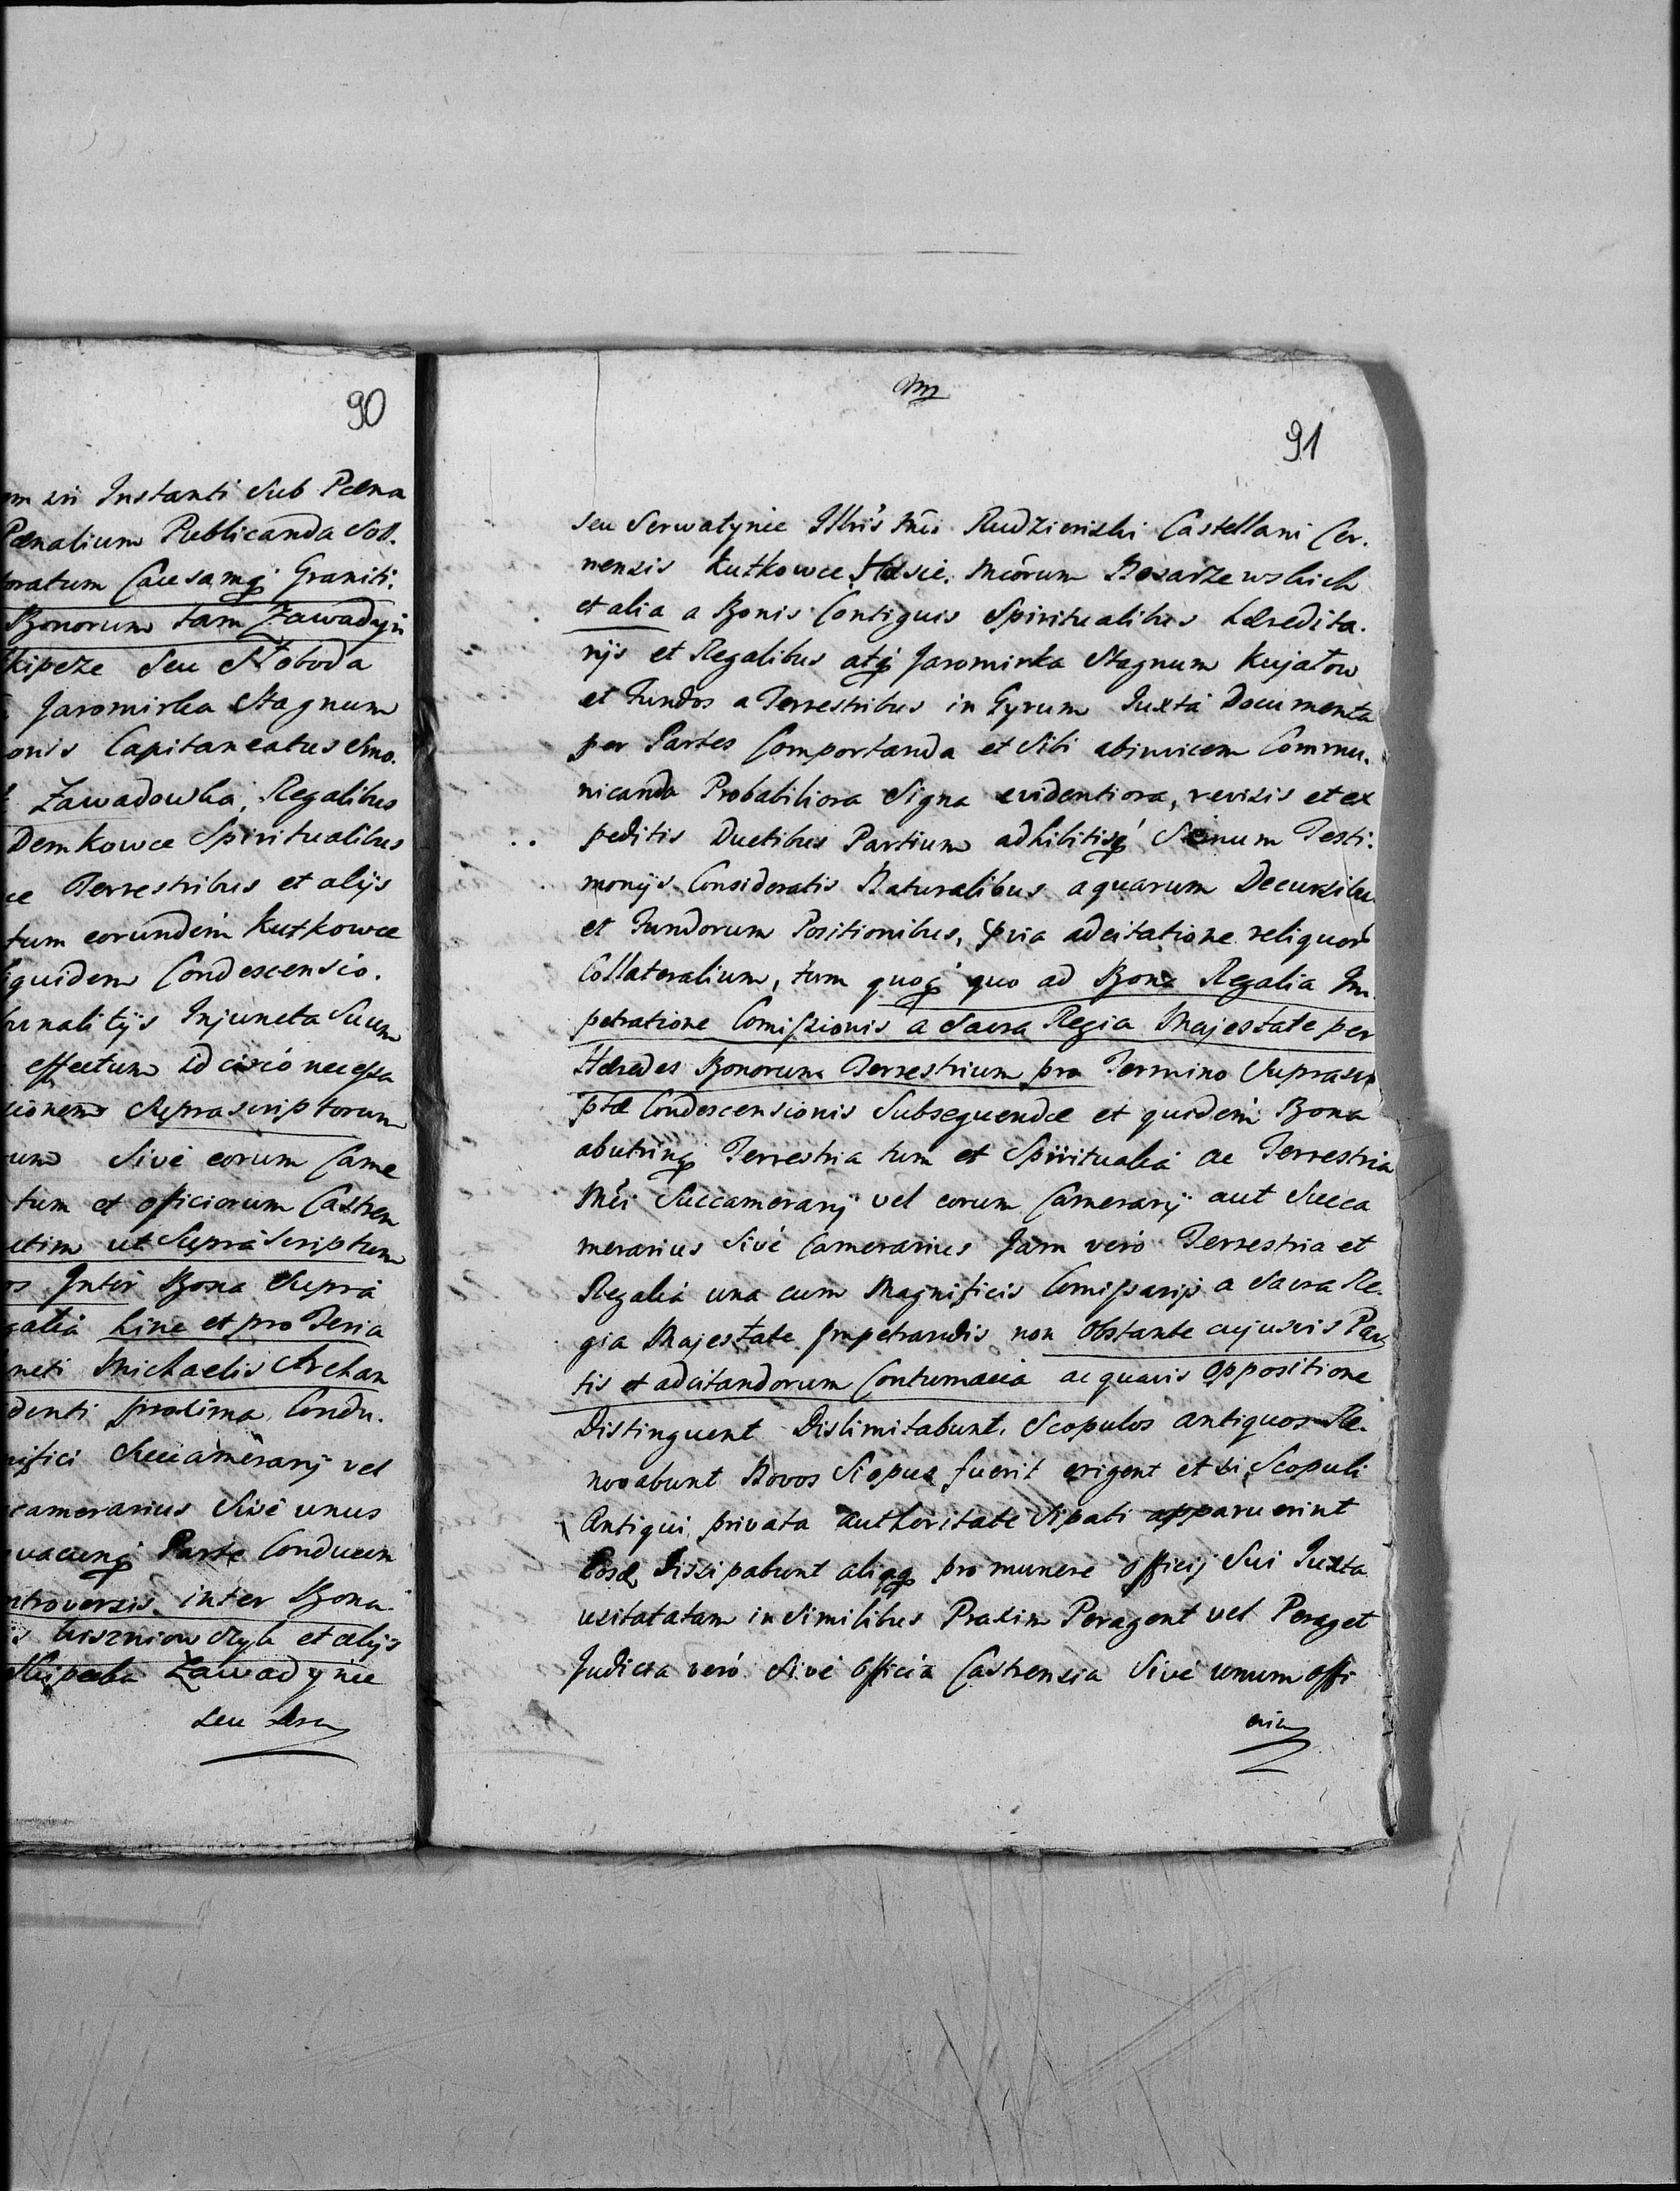 90
in Instanti Sub Pæna
Pænalium Publicanda Sol.
Causamqȝ Graniti.
Bonorum tam Zawadyn
seu Słoboda
Jaromirka Stagnum
onis Capitaneatus Smo.
Zawadowka, Regalibus
Demkowce Spiritualibus
ce Terrestribus et alijs
tum eorundem Kutkowce
quidem Condescensio.
Injuncta Suum
effectum idcirco necessa
cionem Suprascriptorum
um Sivè eorum Came
tum et officiorum Castren
ut Supra Scriptum
os Inter Bona Supra
galia hinc et pro Feria
Michaelis Archan
denti proxima Condu.
nifici Succamerarij vel
camerarius Sivè unus
uacunqȝ Parte Conducen
ntroversis inter Bona
et alijs
Zawadynie
seu Ser
91
seu Serwatynie Illris Mci Rudzienski Castellani Cer.
nensis Kutkowce Hæsie. Mcorum Bosarzewskich
et alia a Bonis Contiguis Spiritualibus hæredita.
rijs et Regalibus atqȝ Jaromirka Stagnum Kujatow
et Fundos a Terrestribus in Gyrum Juxta Documenta
per Partes Comportanda et Sibi abinvicem Commu.
nicanda Probabiliora Signa evidentiora, revisis et ex
peditis Ductibus Partium adhibitisqȝ Senum Testi.
monijs Consideratis Naturalibus aquarum Decursibu
et Fundorum Positionibus, pvia adcitatione reliquor
Collateralium, tum quoqȝ quo ad Bona Regalia Im
petratione Comissionis a Sacra Regia Majestate per
Hæredes Bonorum Terrestrium pro Termino Suprascri
ptæ Condescensionis Subsequendæ et quidem Bona
abutrinqȝ Terrestria tum et Spiritualia ac Terrestria
Mci Succamerarij vel eorum Camerarij aut Succa
merarius Sivè Camerarius Jam verò Terrestria et
Regalia una cum Magnificis Comissarijs a Sacra Re.
gia Majestate Impetrandis non Obstante cujusvis Par
tis et adcitandorum Contumacia ac quavis Oppositione
Distinguent Dislimitabunt. Scopulos antiquos Re.
novabunt Novos Si opus fuerit erigent et si Scopuli
Antiqui privata Authoritate Sipati apparuerint
Eosd. Dissipabunt aliaqȝ pro munere Officij Sui Juxta
usitatatam in Similibus Praxim Peragent vel Peraget
Judicia verò Sivè Officia Castrensia Sivè unum Offi
cia